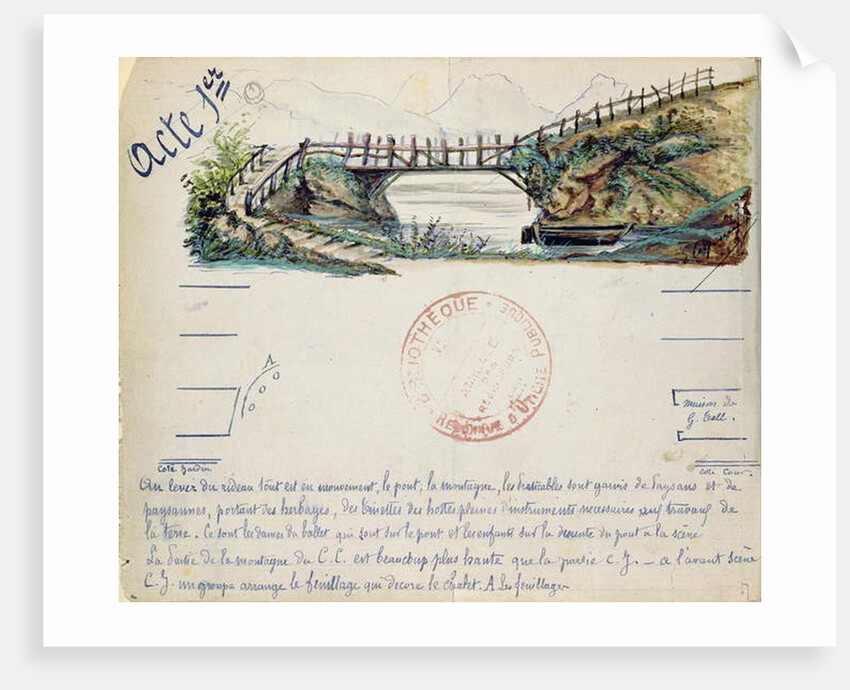 Acte 1er
1
A
maison de
G. Tell.
Coté Jardin
coté Cour.
BIBLIOTHÈQUE PUBLIQUE
AMICALE
DES
REGISSEURS
Au lever du rideau tout est en mouvement, le pont, la montagne, les praticables sont garnis de Paysans et de
paysannes, portant des herbages, des binettes des hottes pleines d'instruments necessaires aux travaux de
la terre. Ce sont les dames du ballet qui sont sur le pont et les enfants sur la descente du pont à la scène
La Partie de la montagne du C.C. est beaucoup plus haute que la partie C.J. — a l'avant scène
C.J. un groupe arrange le feuillage qui decore le chalet. A Le feuillage